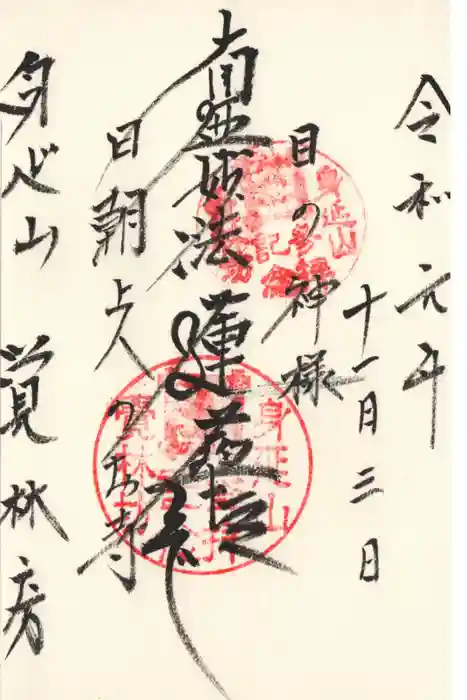 令和元年
十一月三日
目の神様
南無妙法蓮華経
日朝上人のお寺
身延山 覚林房
身延山
身延山